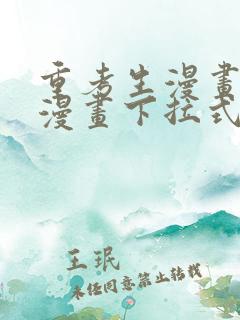 重考生漫畫
漫畫下拉式
王珉
未经同意禁止转载